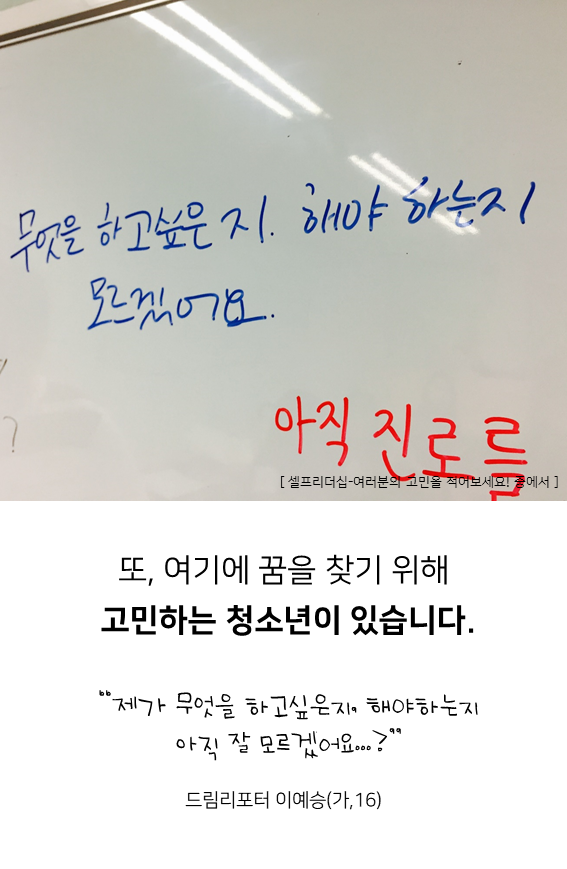 무엇을 하고싶은지. 해야 하는지
모르겠어요.
아직 진로를
[ 셀프리더십-여러분의 고민을 적어보세요! 중에서 ]
또, 여기에 꿈을 찾기 위해
고민하는 청소년이 있습니다.
“제가 무엇을 하고싶은지, 해야하는지
아직 잘 모르겠어요...?”
드림리포터 이예승(가,16)